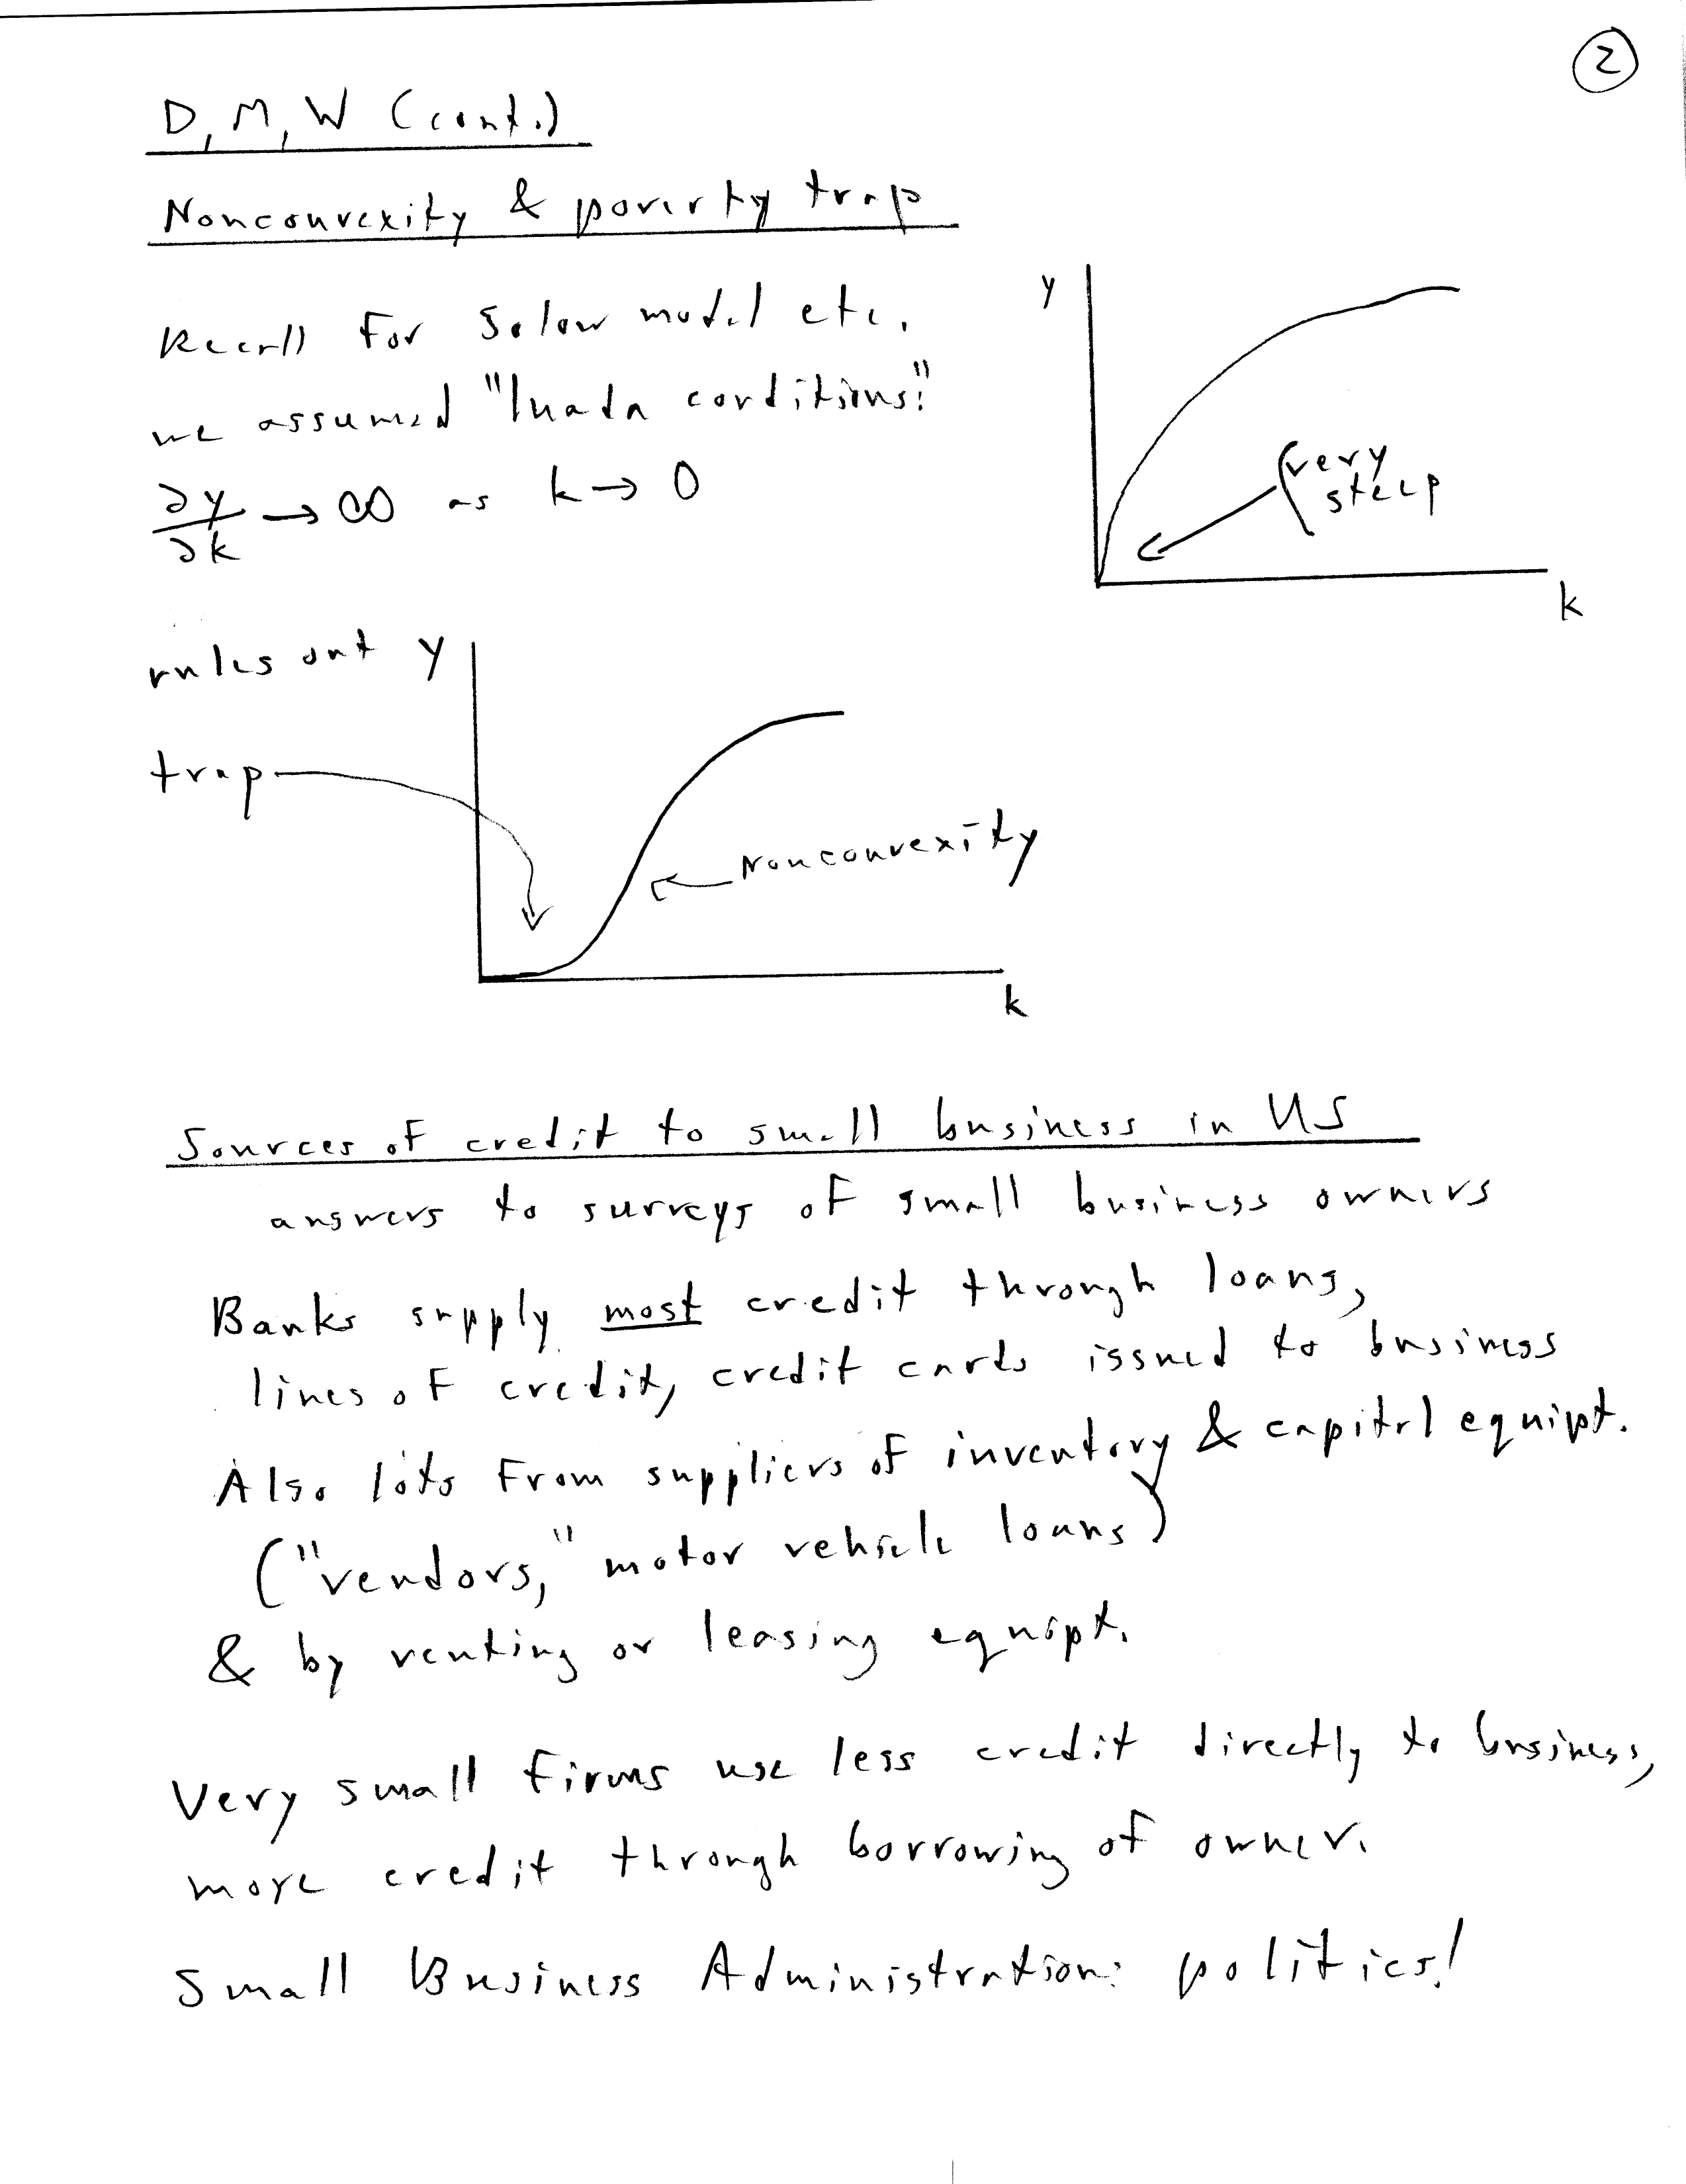 2
D, M, W (cont.)
Nonconvexity & poverty trap
Recall for Solow model etc.
we assumed "Inada conditions:"
∂y/∂k → ∞ as k → 0
y
very
steep
k
rules out y
trap
Nonconvexity
k
Sources of credit to small business in US
answers to surveys of small business owners
Banks supply most credit through loans,
lines of credit, credit cards issued to business
Also lots from suppliers of inventory & capital equipt.
("vendors," motor vehicle loans)
& by renting or leasing equipt.
Very small firms use less credit directly to business,
more credit through borrowing of owner.
Small Business Administration: politics!